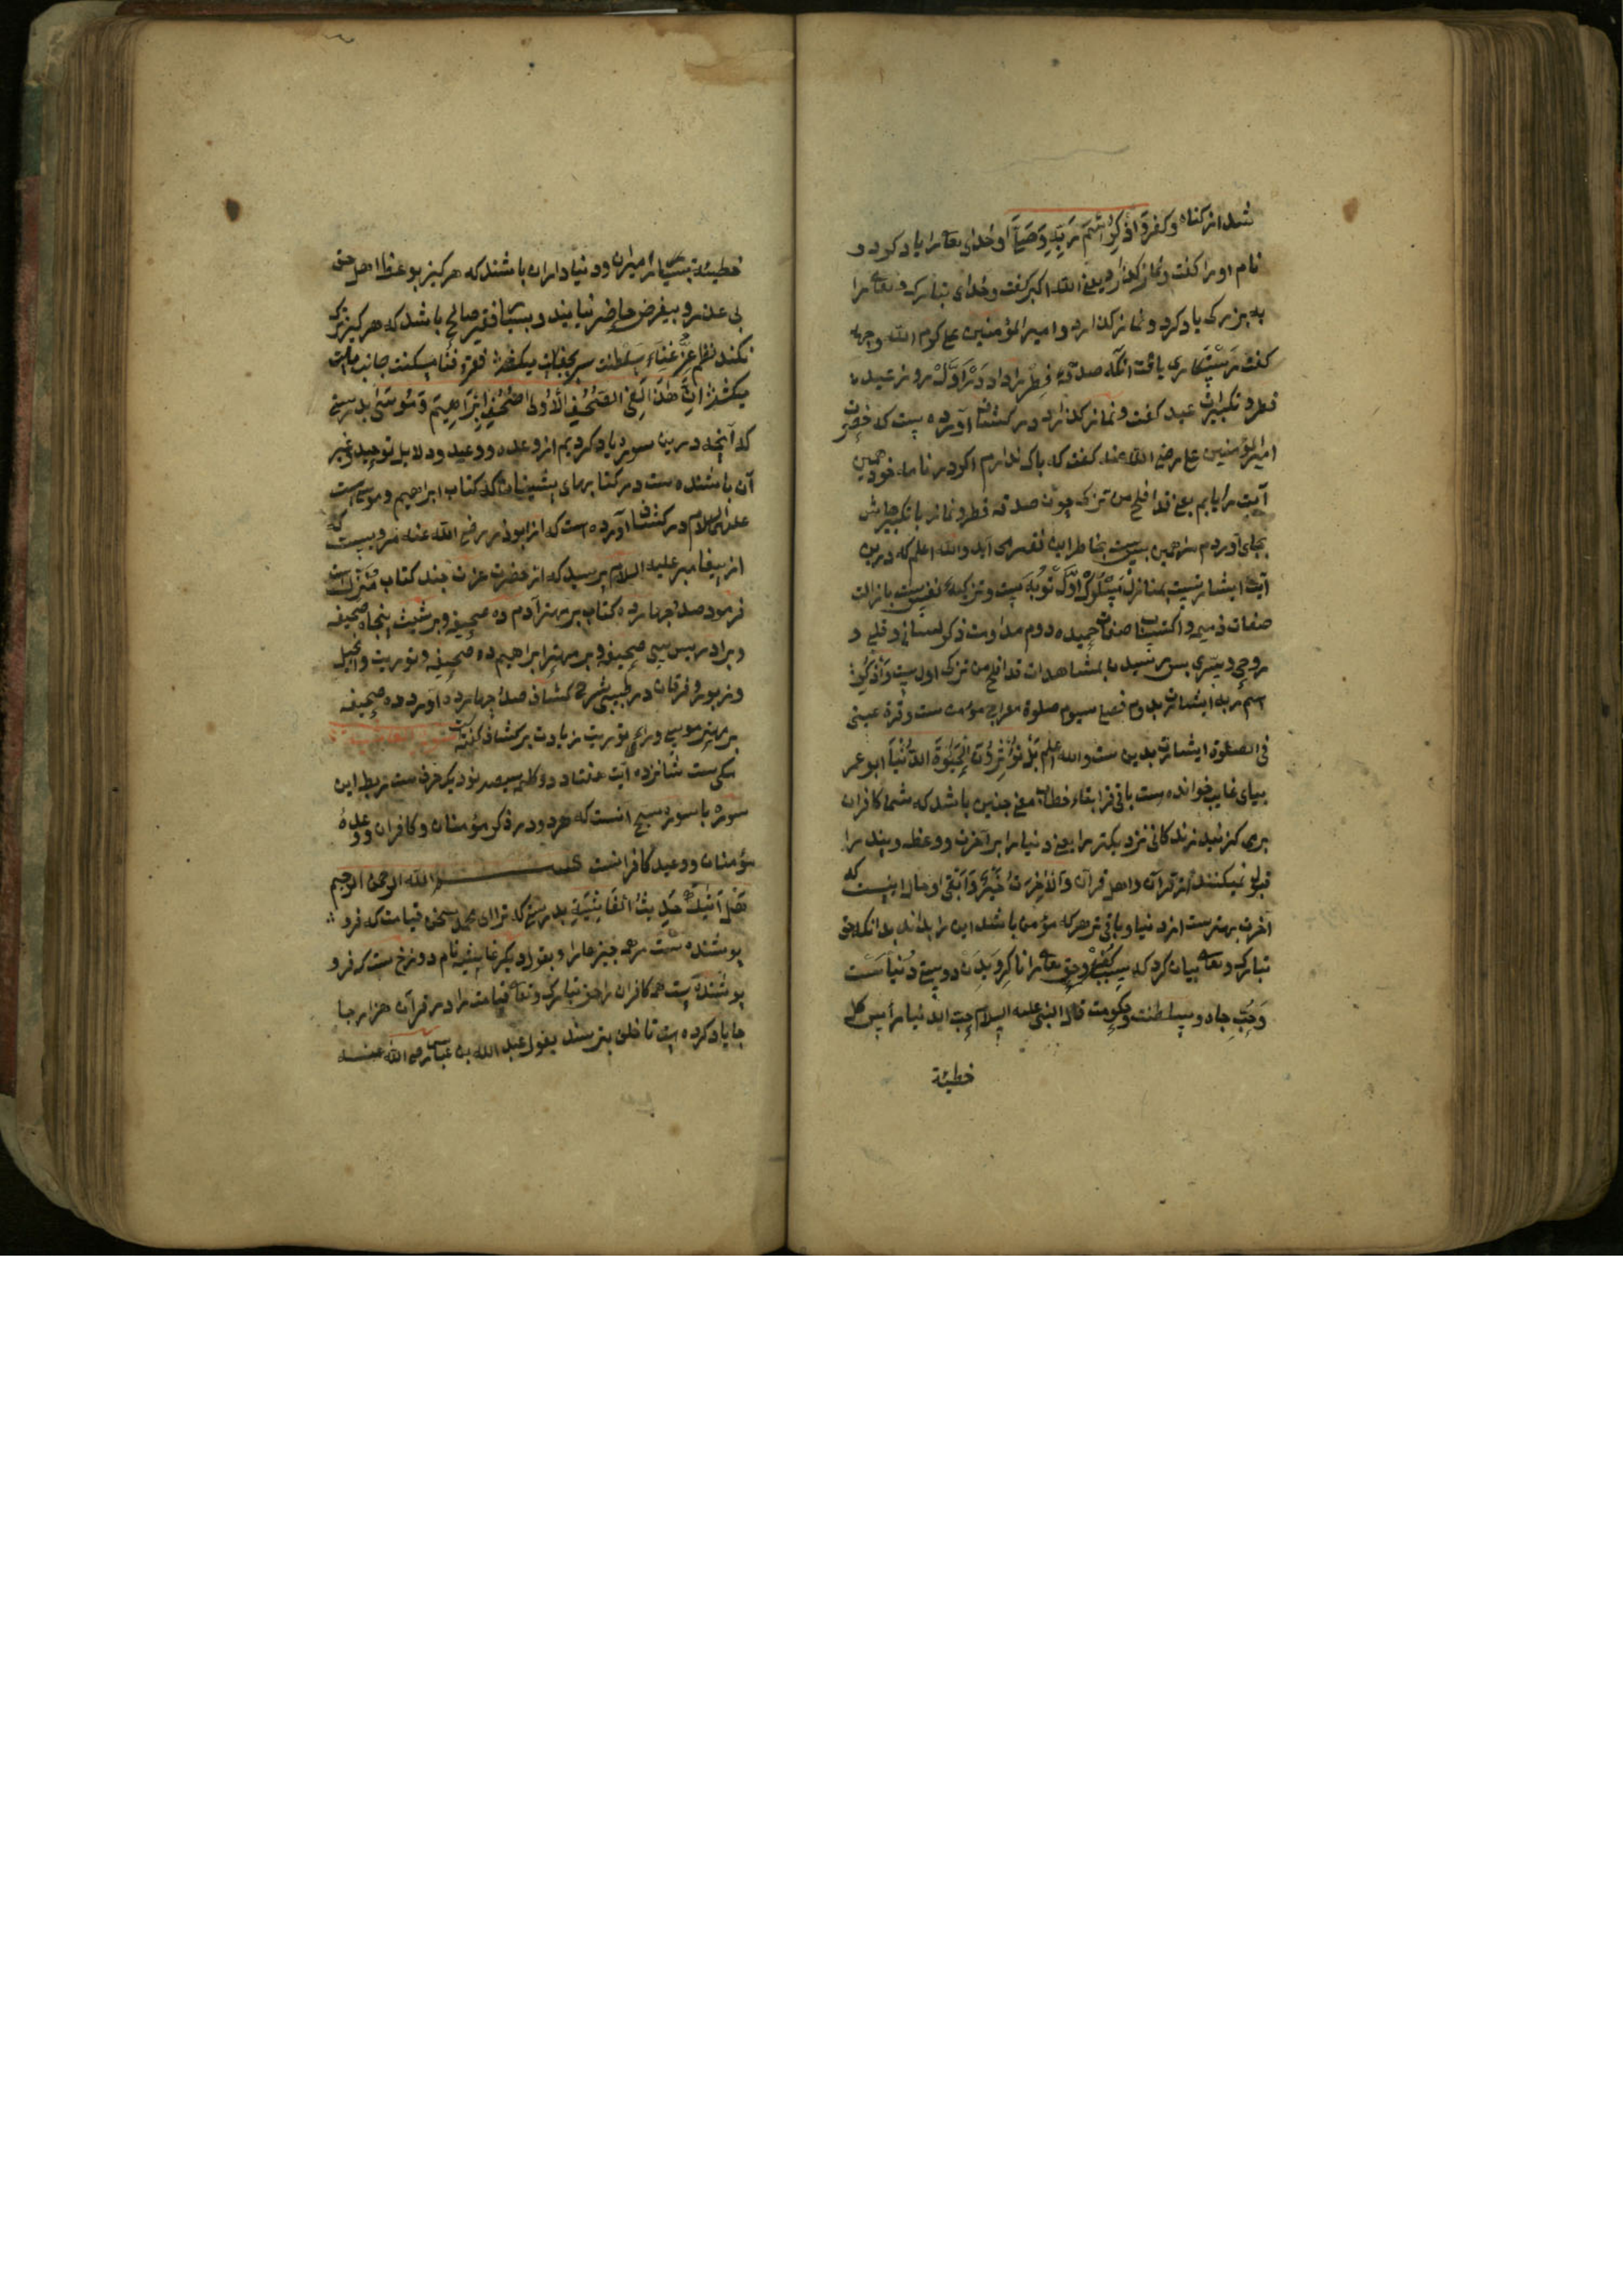 شد از کناه و کفر وَ اذْکُرِ اسْمَ رَبِّهِ وَصَلّٰی او خدای تعالی را یاد کرد و
نام او را کفت و نماز کذارد یعنی الله اکبر کفت و خدای تبارک و تعالی را
به بزرکی یاد کرد و نماز کذارد و امیر المؤمنین علی کرم الله وجهه
کفت رستکاری یافت انکه صدقه فطر را داد و در اوّل روز عید
فطر و تکبیرات عید کفت و نماز کذارد در کشاف آورده است که حضرت
امیر المؤمنین علی رضی الله عنه کفت که باک ندارم اکر در نامه خود همین
آیت را یابم یعنی قد افلح من تزکی چون صدقه فطر و نماز با تکبیراتش
بجای آوردم مرا همین بس است بخاطر این فقیر می آید والله اعلم که درین
آیت اشارتست بمنازل سلوک اوّل توبه است و تزکیه نفس ست بازالت
صفات ذمیمه و اکتساب صفات حمیده دوم مداومت ذکر لسانی و قلبی و
روحی و سرّی بس رسید بمشاهدات قد افلح من تزکی اول ست وَاذْکُرِ
اسم ربه اشارت بدوم فصلی سیوم صلوة معراج مؤمن ست و قرة عینی
فی الصلوة اشارت بدین ست والله اعلم بَلْ تُؤْثِرُونَ الْحَیٰوةَ الدُّنْیَا ابو عمر
بیای غایب خوانده است باقی قرا بتاء خطاب معنی چنین باشد که شما کافران
برمی کزینید زندکانی نزدیکتر را یعنی دنیا را بر آخرت و وعظ و پند را
قبول نمیکنند از قرآن و اهل قرآن وَالْاٰخِرَةُ خَیْرٌ وَّاَبْقٰی و حال اینست که
آخرت بهترست از دنیا و باقی تر هر که مؤمن باشد این را بداند بدانکه حق
تبارک و تعالی بیان کرد که سبب کفر و حق تعالی را ناکرویدن دوستی دنیاست
وَ حُبِّ جاه و سلطنت و حکومت قال النبی علیه السلام حبّ الدنیا رأس کل
خطیئة
خطیئة بسیار از میران و دنیاداران باشند که هرکیز بوعظ اهل حق
بی عذر و بیغرض حاضر نیایند و بسا فقیر صالح باشد که هرکیز ترک
نکند نظم عِزّ غناء سلطنت سر بجفات میکشد فقر و فنا مسکنت جانب ملت
میکشد اِنَّ هٰذَا لَفِی الصُّحُفِ الْاُولٰی صُحُفِ اِبْرَاهِیْمَ وَمُوْسٰی بدرستی
که آنچه درین سوره یاد کردیم از وعده و وعید و دلایل توحید و غیر
آن باشنده ست در کتابهای پیشینیان که کتاب ابراهیم و موسی است
علیهما السلام در کشاف آورده است که از ابوذر رضی الله عنه مرویست که
از پیغامبر علیه السلام پرسید که از حضرت عزت چند کتاب منزل است
فرمود صد و چهارده کتاب بر مهتر آدم ده صحیفه و بر شیث پنجاه صحیفه
و بر ادریس سی صحیفه و بر مهتر ابراهیم ده صحیفه و توریت و انجیل
و زبور و فرقان در طیبی شرح کشاف صد و چهارده آورده ده صحیفه
بر مهتر موسی ورای توریت زیادت بر کشاف کفته
مکی ست شانزده آیت هفتاد دو کلمه سیصد نود یک حرف ست ربط این
سوره با سوره سبح آنست که هر دو در ذکر مؤمنان و کافران و وعدهٔ
مؤمنان و وعید کافرانست بسم الله الرحمن الرحیم
هَلْ اَتٰیکَ حَدِیْثُ الْغَاشِیَةِ بدرستی که تران ای محمد سخن قیامت که فرو
پوشنده ست همه چیزها را و بقول دیکر غاشیه نام دوزخ ست که فرو
پوشنده است همه کافران را حق تبارک و تعالی قیامت را در قرآن هزار جا
جا یاد کرده است تا خلق بترسند بقول عبد الله بن عباس رضی الله عنه